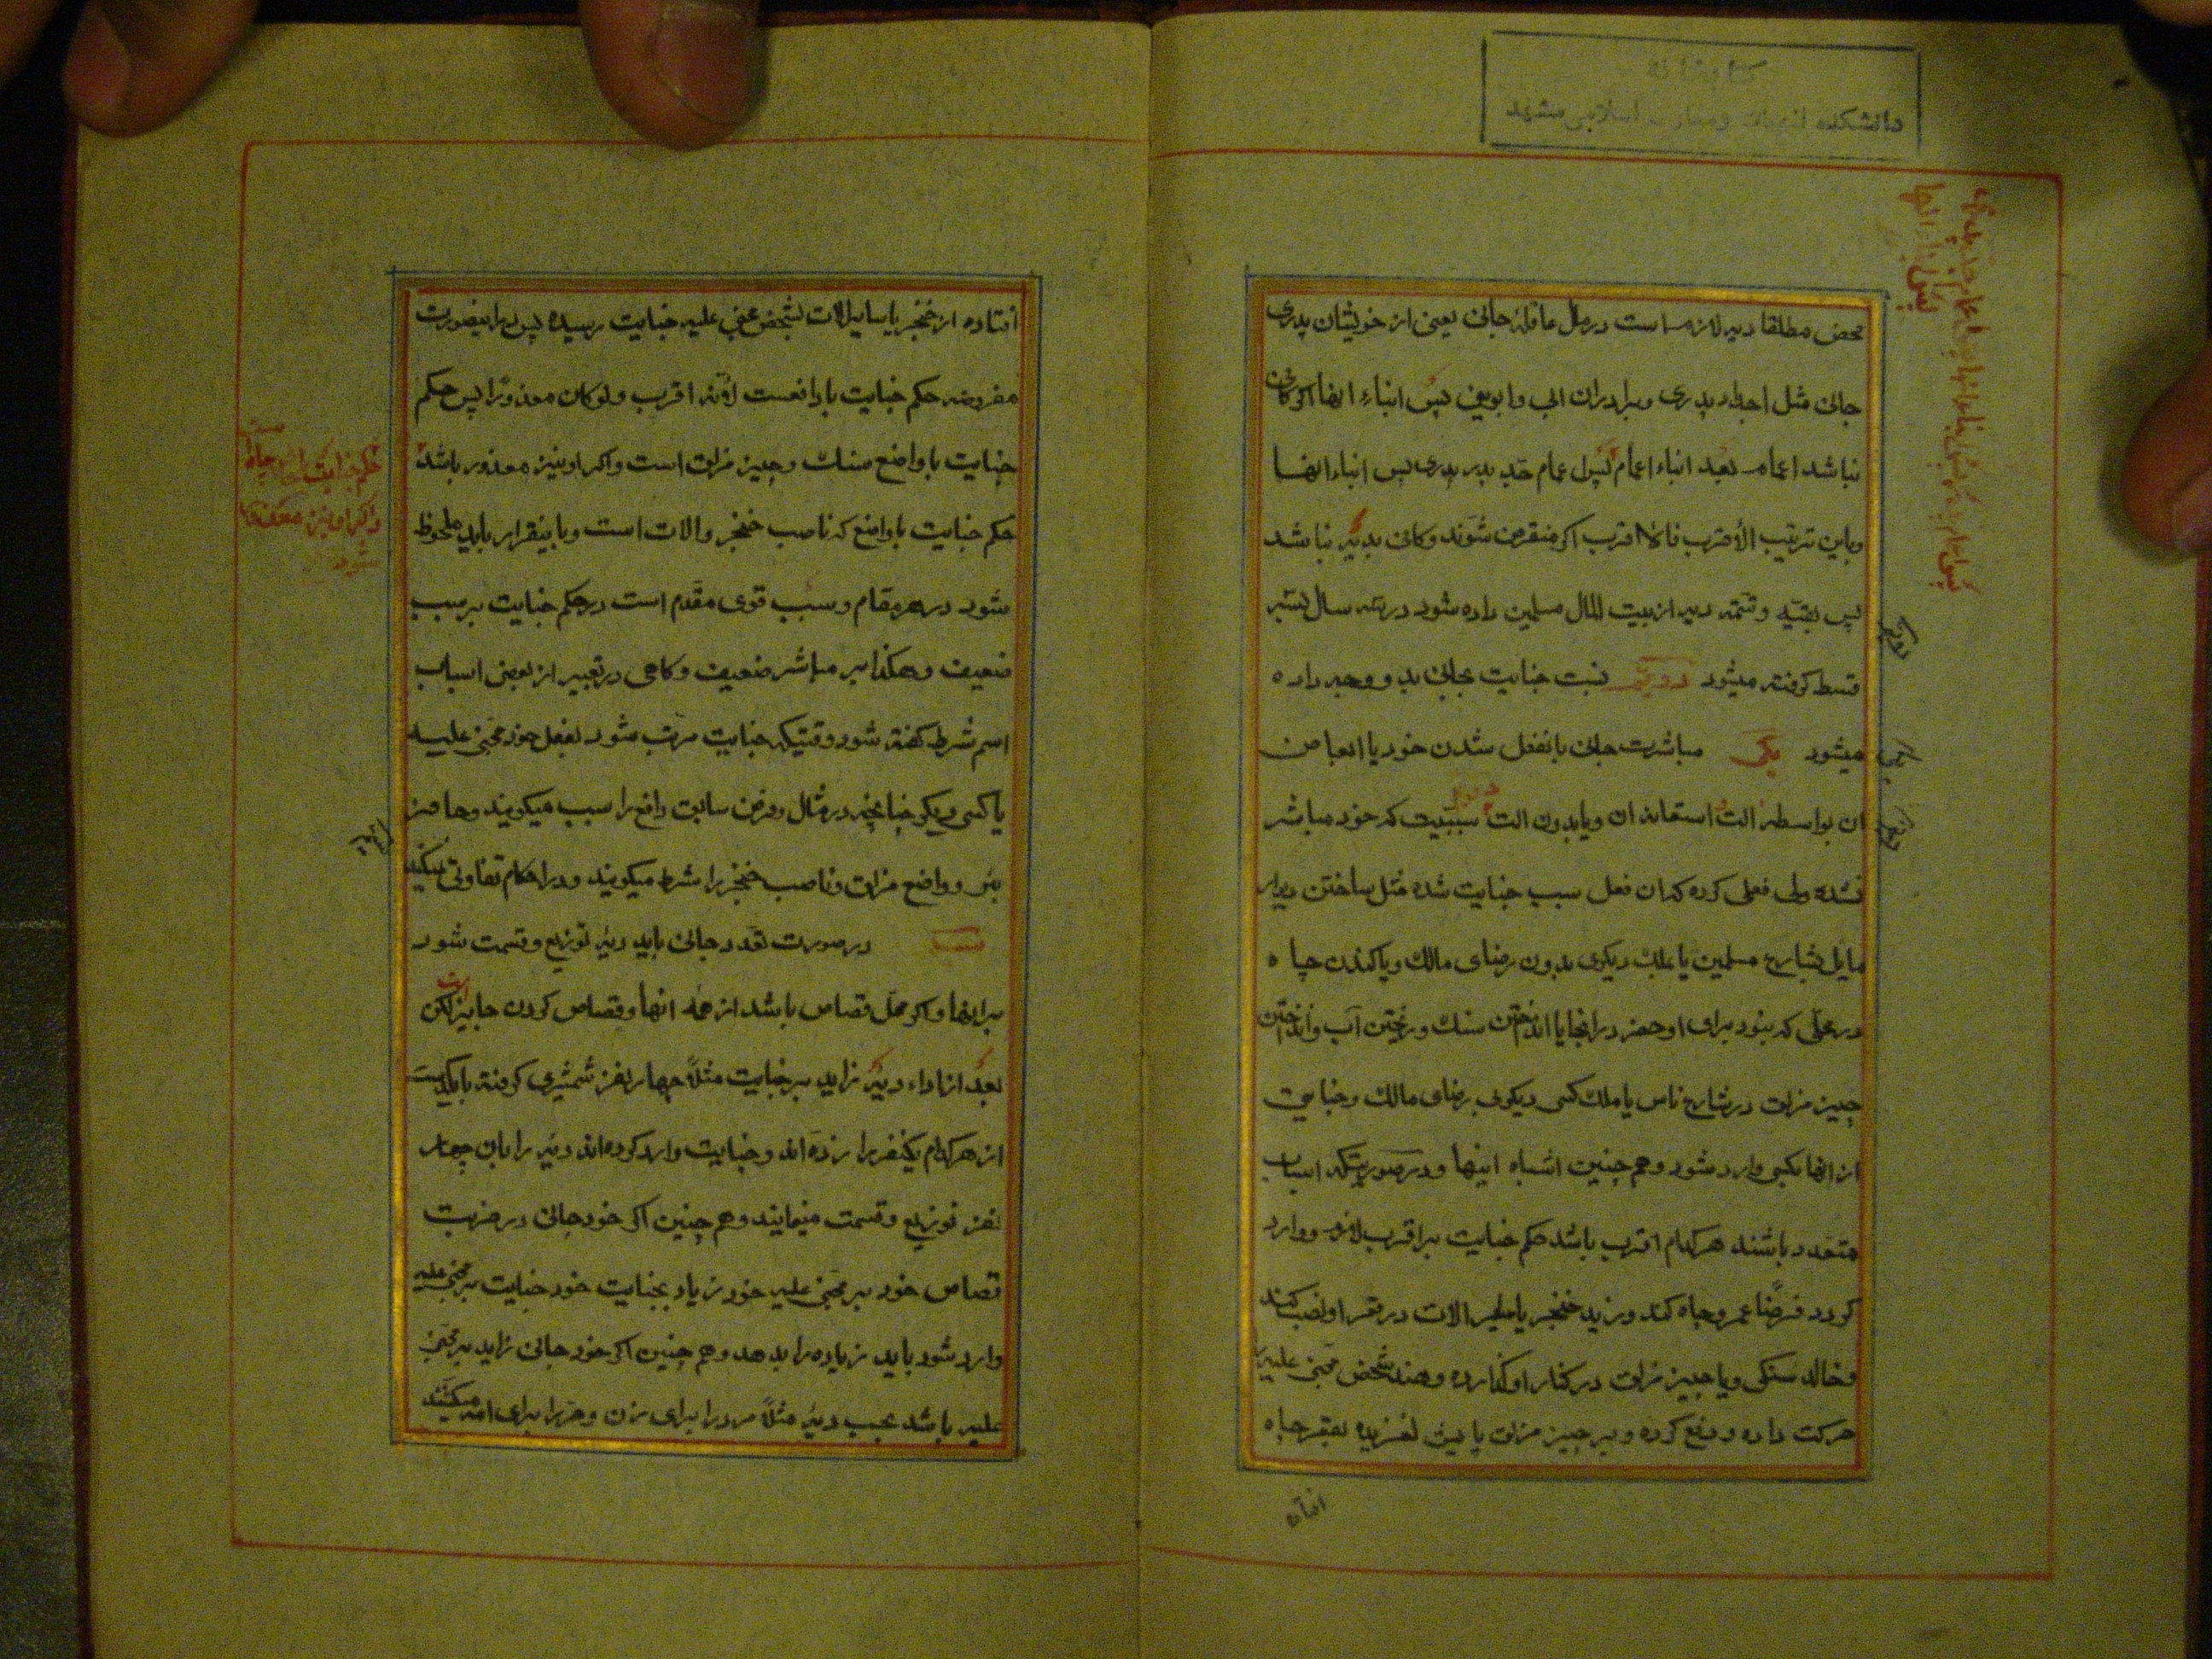 دانشکده الهیات و معارف اسلامی مشهد
محض مطلقا دیه لازمست در مال عاقلهٔ جانی یعنی از خویشان پدری
جانی مثل اجداد پدری و برادران ابی و ابوینی پس ابناء انها اکر کافی
نباشد اعمام بعد ابناء اعمام پس اعمام جد پدر پدری پس ابناء انها
و باین ترتیب الأقرب فالاقرب اکر منقرض شوند و کافی بدیه نباشد
پس بقیه و تتمه دیه از بیت المال مسلمین داده شود در سه سال بسه
قسط کرفته میشود نسبت جنایت بجانی بدو وجه داده
میشود یکی مباشرت جانی بانفعل شدن خود یا
ان بواسطه الت استعانه ان و یا بدون الت سببیت که خود مباشر
نشده ولی فعلی کرده که ان فعل سبب جنایت شده مثل ساختن دیوار
مایل بشارع مسلمین یا بملک دیکری بدون رضای مالک و یا کندن چاه
در محلی که نبود برای او حفر در انجا یا انداختن سنک و ریختن آب و انداختن
چیز مزلق در شارع ناس یا ملک کسی دیکری برضای مالک و جنایتی
از انها بکسی وارد شود و هم چنین اشباه اینها و در صورتیکه اسباب
متعدد باشند هر کدام اقرب باشد حکم جنایت بر اقرب لازم و وارد
کردد فرضًا عمرو چاه کند و زید خنجر یا سایر الات در قعر او نصب کند
و خالد سنکی و یا چیز مزلق در کنار او کذارده و هند شخص مجنی علیه را
حرکت داده و دفع کرده و بر چیز مزلق پایش لغزیده بقعر چاه
افتاده
افتاده از خنجر یا سایر الات بشخص مجنی علیه جنایت رسیده پس در اینصورت
مفروضه حکم جنایت با دافعست لانه اقرب ولو کان معذورًا پس حکم
جنایت با واضع سنک و چیز مزلق است و اکر او نیز معذور باشد
حکم جنایت با واضع که ناصب خنجر و الات است و باینقرار باید ملحوظ
شود در هر مقام و سبب قوی مقدم است در حکم جنایت بر سبب
ضعیف و هکذا بر مباشر ضعیف و کاهی در تعبیر از بعض اسباب
اسم شرط کفته شود وقتیکه جنایت مرتب شود بفعل خود مجنی علیه
یا کسی دیکر چنانچه در مثال و فرض سابق دافع را سبب میکویند و حافر
بئر و واضع مزلق و ناصب خنجر را شرط میکویند و در احکام تفاوتی نمیکند
در صورت تعدد جانی باید دیه توزیع و قسمت شود
بر انها و اکر محل قصاص باشد از همه انها و قصاص کردن جایز لکن
بعد از اداء دیه زاید بر جنایت مثلًا چهار نفر شمشیری کرفته بایکدست
از هر کدام یکنفر را زده اند و جنایت وارد کرده اند دیه را باین چهار
نفر توزیع و قسمت مینمایند و هم چنین اکر خود جانی در ضربت
قصاص خود بر مجنی علیه خود زیاد بجنایت خود جنایت بر مجنی علیه
وارد شود باید زیاده را بدهد و هم چنین اکر خود جانی زاید بر مجنی
علیه باشد بحسب دیه مثلًا مرد را برای زن و حر را برای امه میکشند